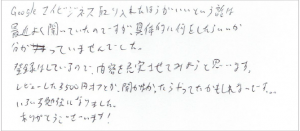 Googleマイビジネス取り入れたほうがいいという話は
最近よく聞いていたのですが、具体的に何をしたらいいか
分かっていませんでした。
登録はしているので、内容を充実させてみようと思います。
レビューしたら500円オフとか、聞かなかったらやってたかもしれないです…。
いい勉強になりました。
ありがとうございます！